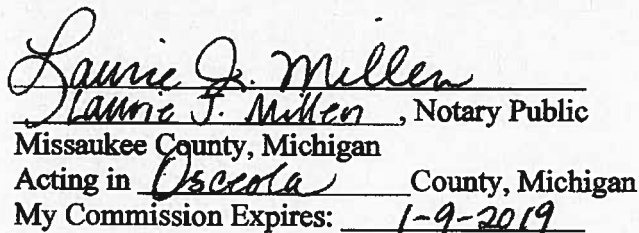 Laurie J. Millen
Laurie J. Millen, Notary Public
Missaukee County, Michigan
Acting in Osceola County, Michigan
My Commission Expires: 1-9-2019